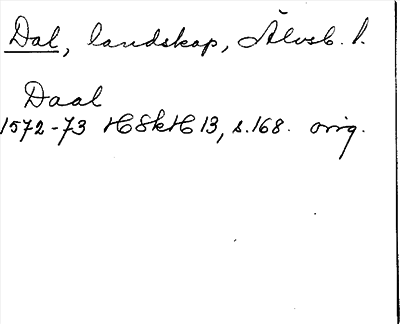 Dal, landskap, Älvsb. l.
Daal
1572-73 HSkH 13, s.168. orig.